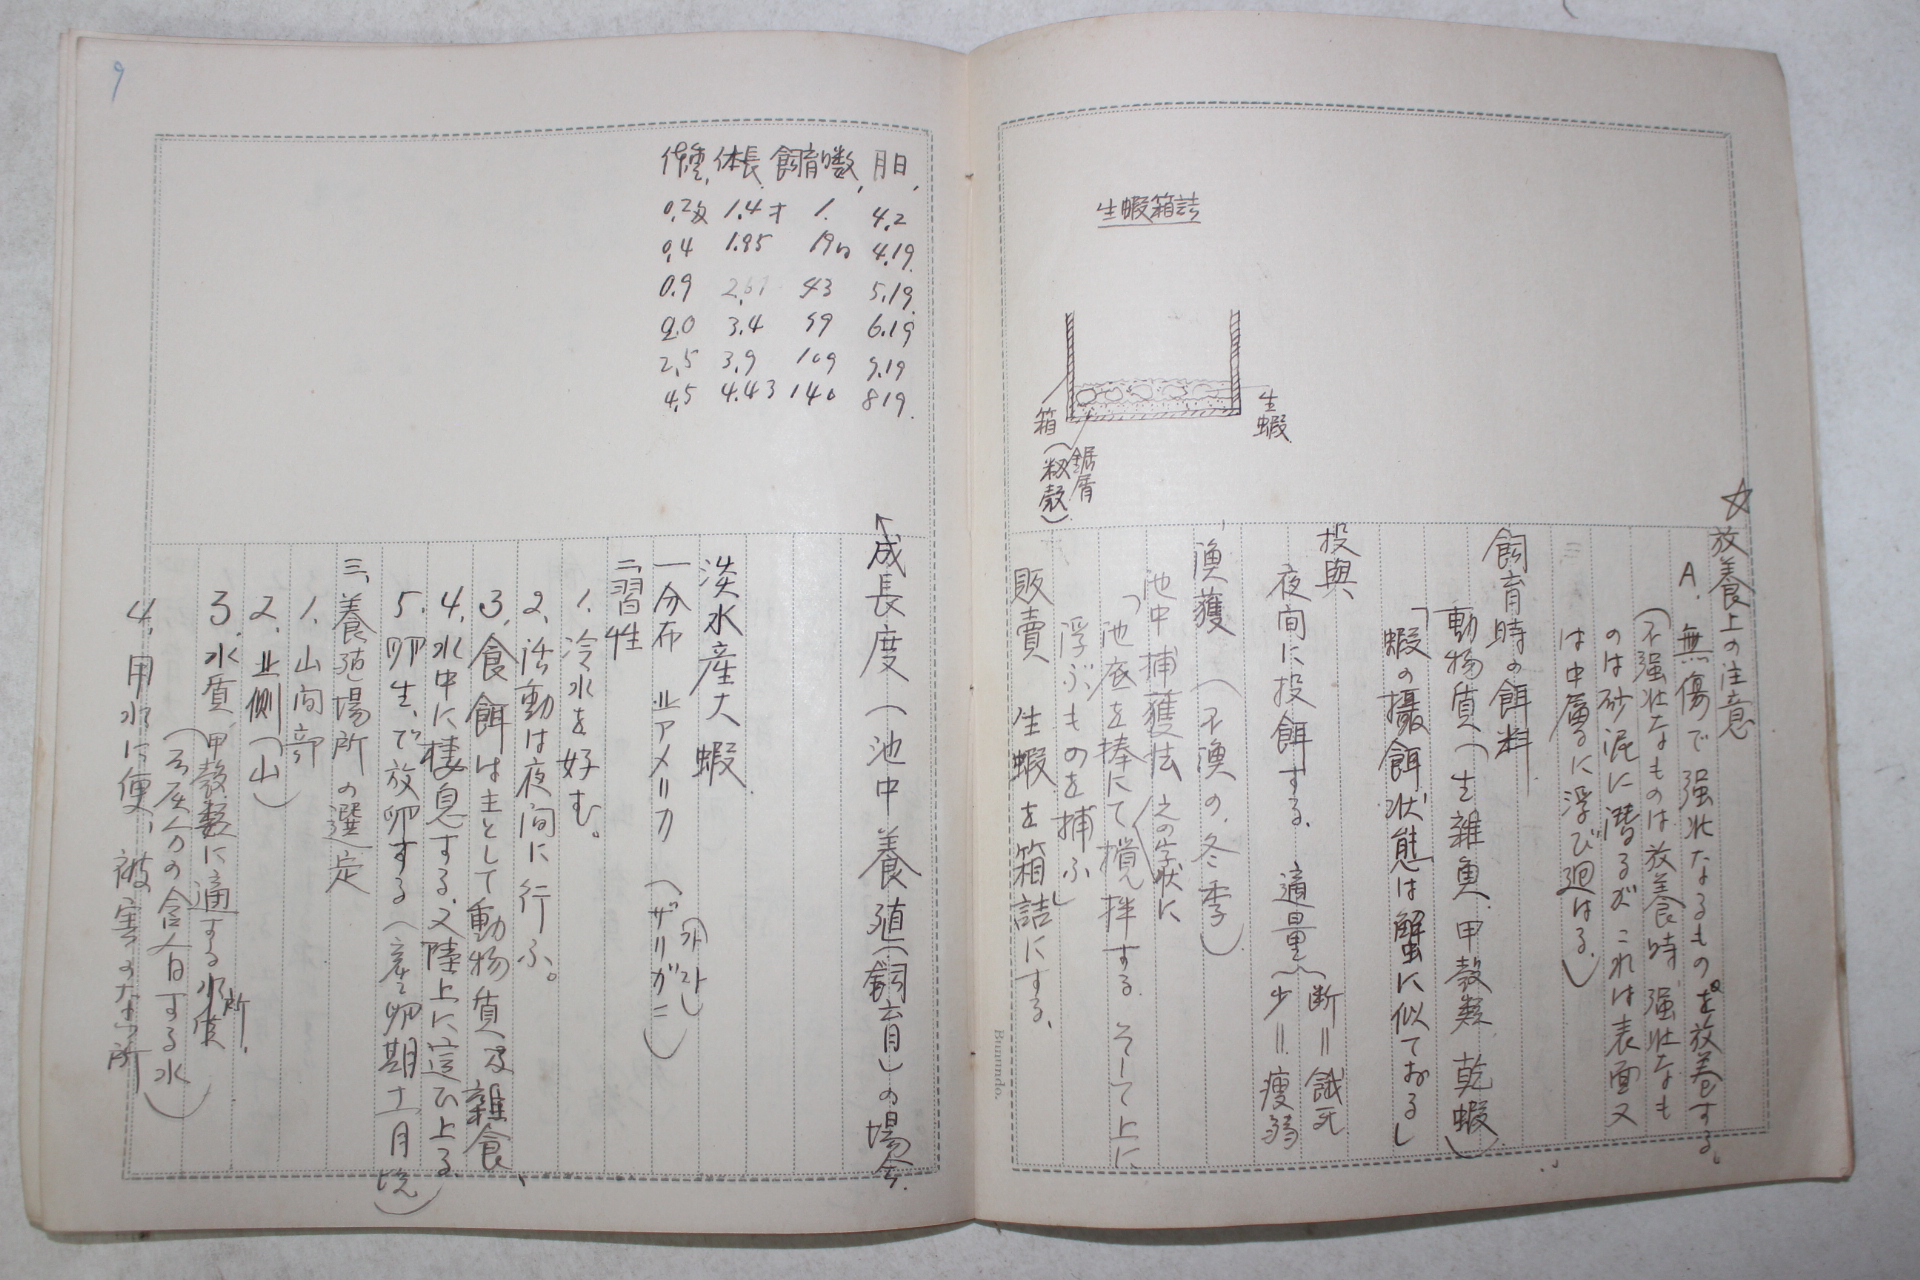 生蝦箱詰
箱
生蝦
鋸屑
(籾殻)
放養上の注意
A. 無傷で強壮なるものを放養する。
(不强壮なものは放養時 强壮なも
のは砂泥に潜るが これは表面又
は中層に浮び廻はる)
飼育時の餌料
動物質(生雑魚、甲殻類 乾蝦)
「蝦の攝餌状態は蟹に似ておる」
投與
夜间に投餌する、適量
(断＝餓死
少＝痩弱
漁獲 (不漁の、冬季)
池中捕獲法 之の字状に
「池底を捧にて撹拌する、そして上に
浮ぶものを捕ふ」
販賣 生蝦を箱詰にする、
9
体重, 体長 飼育日数, 月日,
0.2匁 1.4寸 1. 4.2
0.4 1.95 19日 4.19.
0.9 2.67 43 5.19.
2.0 3.4 59 6.19
2.5 3.9 109 9.19
4.5 4.43 140 8 19.
成長度(池中養殖(飼育)の場合.
淡水産大蝦
一分布 北アメリカ (ザリガニ)
二、習性
1. 冷水を好む。
2. 活動は夜间に行ふ。
3. 食餌は主として動物質及雑食
4. 水中に棲息する、又陸上に這ひ上る
5. 卵生、で放卵する(産卵期十一月頃)
三、養殖場所の選定
1. 山间部
2. 北側(山)
3. 水質、甲殻類に適する水質所.
(石灰分の含有する水)
4. 用水に便、被害のなき所